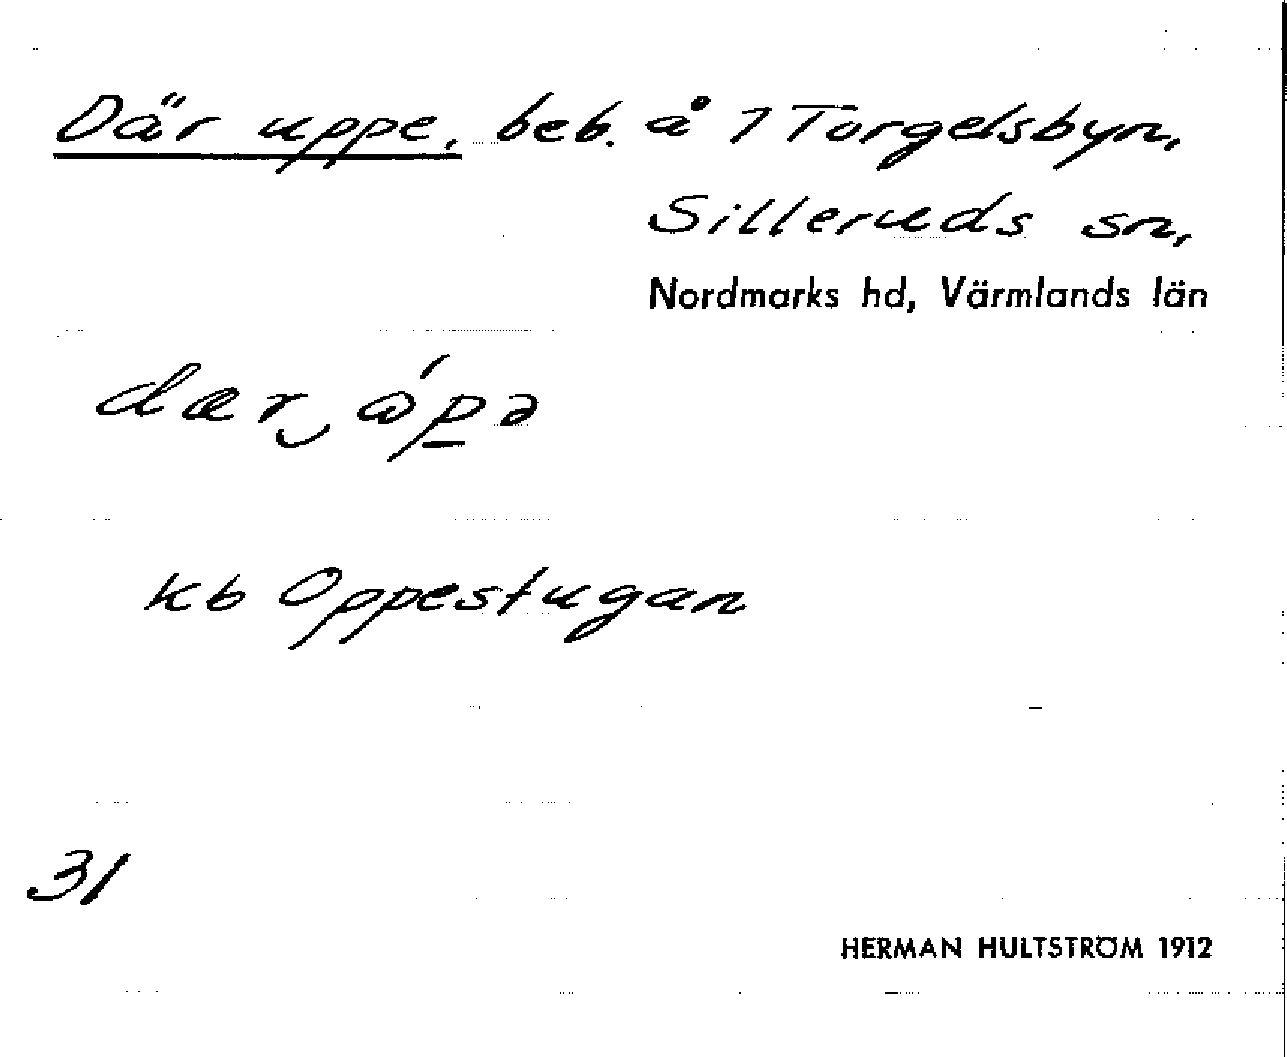 Där uppe, beb. å 1 Torgelsbyn,
Silleruds sn,
Nordmarks hd, Värmlands län
dær ͜ åṕ̲ə
kb Oppestugan
31
HERMAN HULTSTRÖM 1912